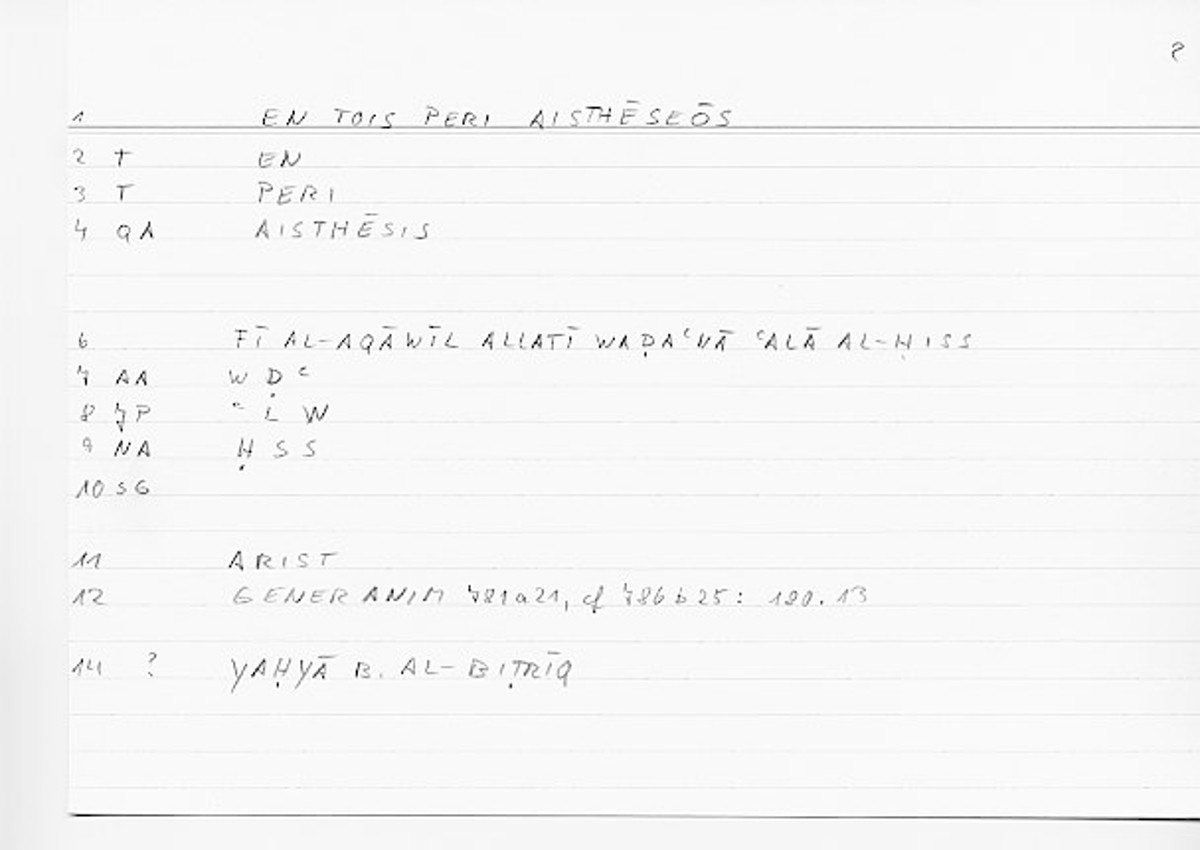 ?
1 EN TOIS PERI AISTHĒSEŌS
2 T EN
3 T PERI
4 QA AISTHĒSIS
6 FĪ AL-AQĀWĪL ALLATĪ WAḌAʿNĀ ʿALĀ AL-ḤISS
7 AA W Ḍ ʿ
8 7P ʿ L W
9 NA Ḥ S S
10 SG
11 ARIST
12 GENER ANIM 781a21, cf 786b25: 180.13
14 ? YAḤYĀ B. AL-BIṬRĪQ